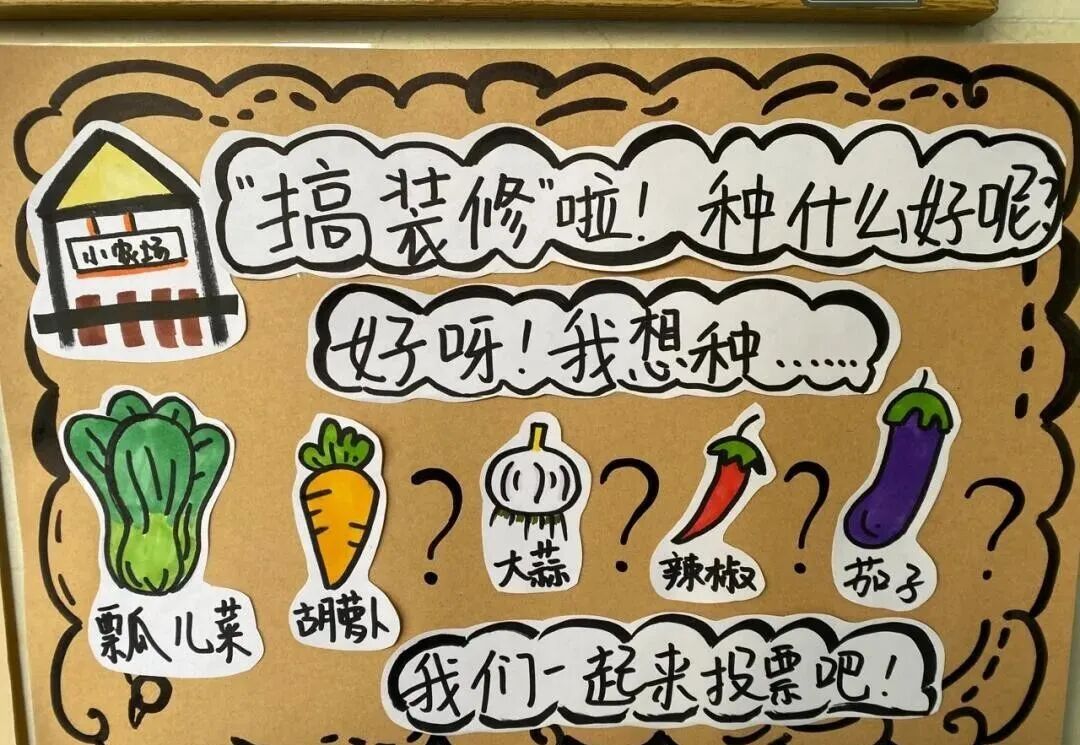 小农场
"搞装修"啦！种什么好呢？
好呀！我想种……
瓢儿菜
胡萝卜
？
大蒜
？
辣椒
？
茄子
？
我们一起来投票吧！